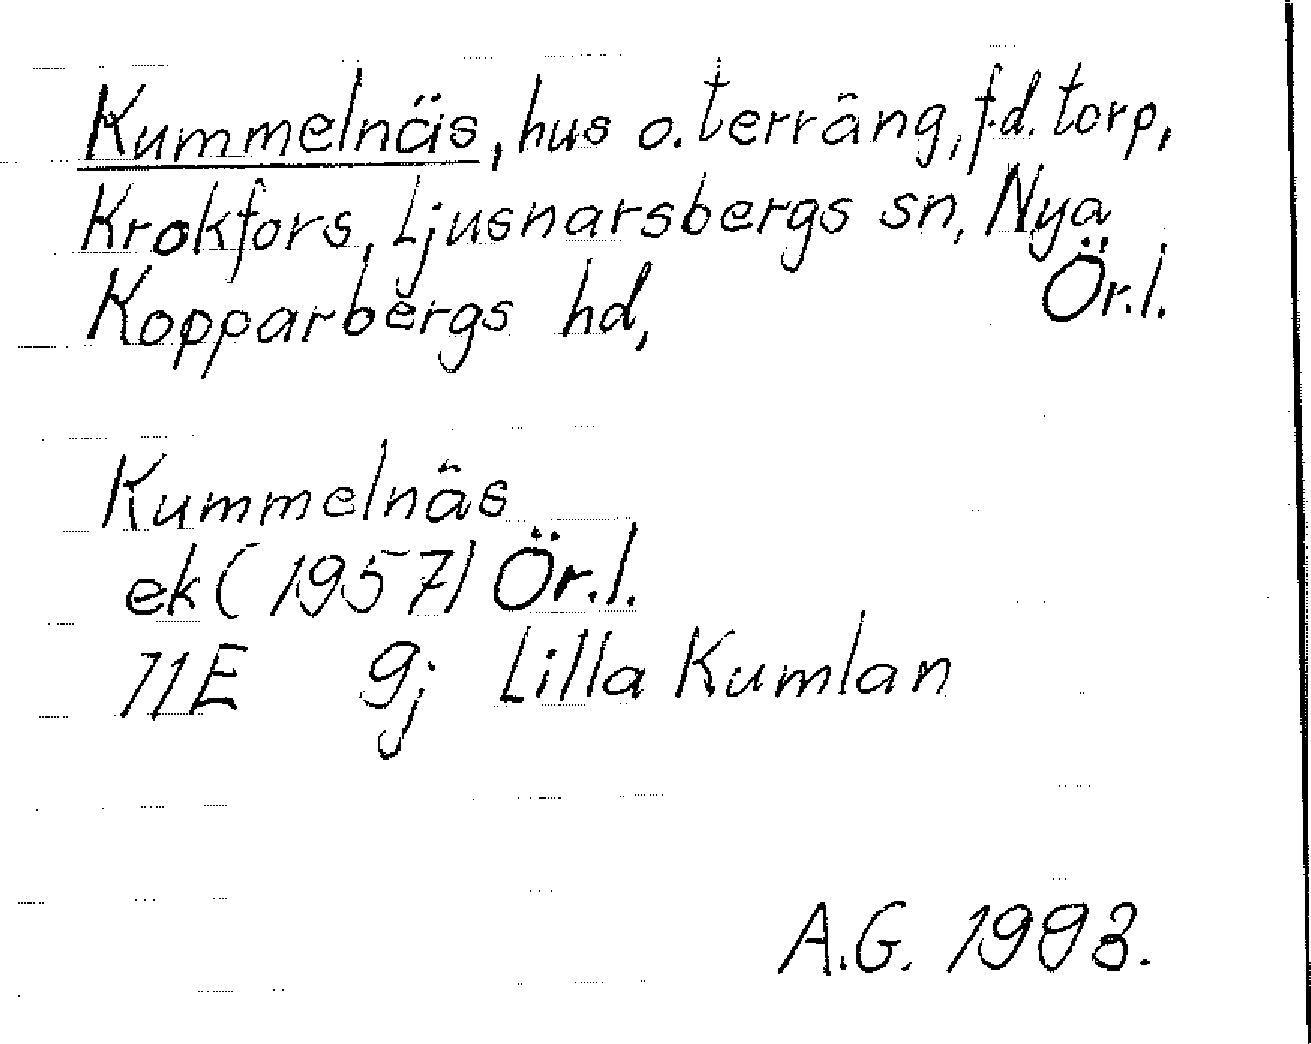 Kummelnäs, hus o. terräng, f.d. torp,
Krokfors, Ljusnarsbergs sn, Nya
Kopparbergs hd, Ör.l.
Kummelnäs
ek (1957) Ör.l.
11E 9j Lilla Kumlan
A.G. 1993.